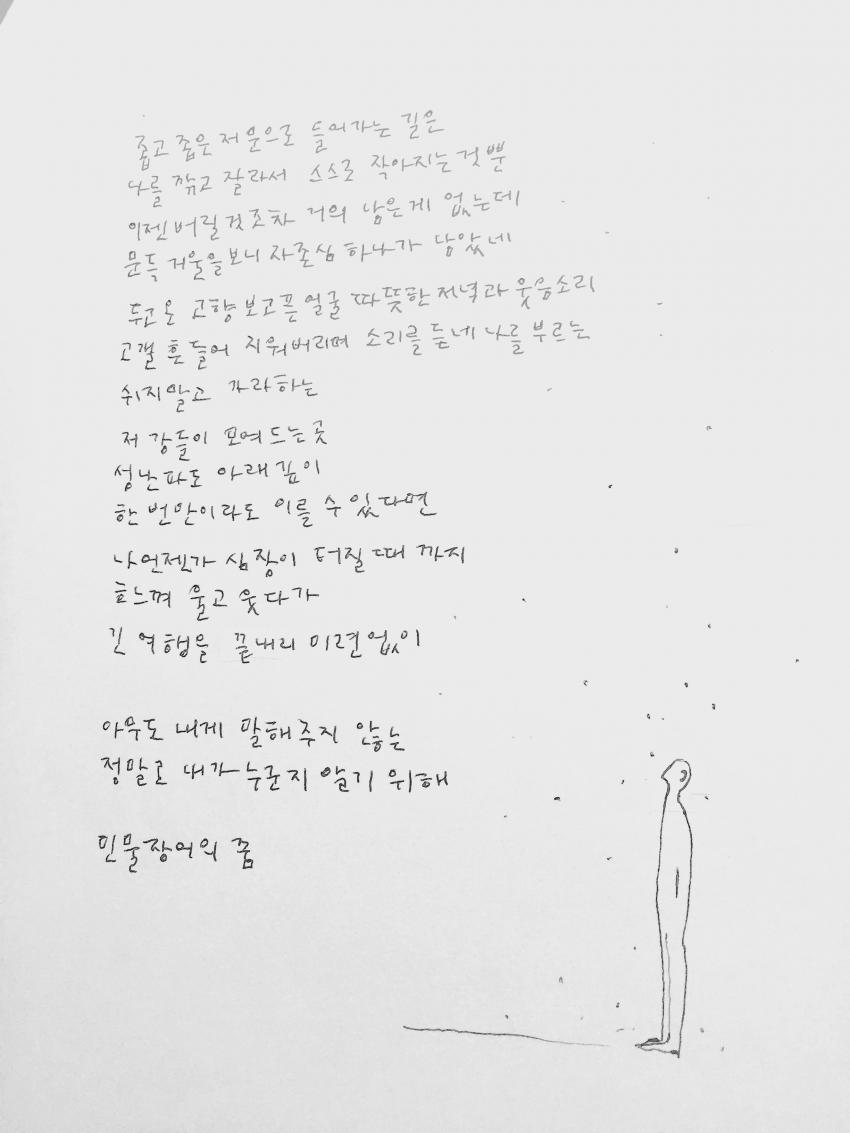 좁고 좁은 저 문으로 들어가는 길은
나를 깎고 잘라서 스스로 작아지는 것뿐
이젠 버릴 것조차 거의 남은게 없는데
문득 거울을 보니 자존심 하나가 남았네
두고온 고향 보고픈 얼굴 따뜻한 저녁과 웃음소리
고갤 흔들어 지워버리며 소리를 듣네 나를 부르는
쉬지말고 가라하는
저 강들이 모여드는 곳
성난파도 아래 깊이
한 번만이라도 이를 수 있다면
나 언젠가 심장이 터질 때 까지
흐느껴 울고 웃다가
긴 여행을 끝내리 미련없이
아무도 내게 말해 주지 않는
정말로 내가 누군지 알기 위해
민물장어의 꿈